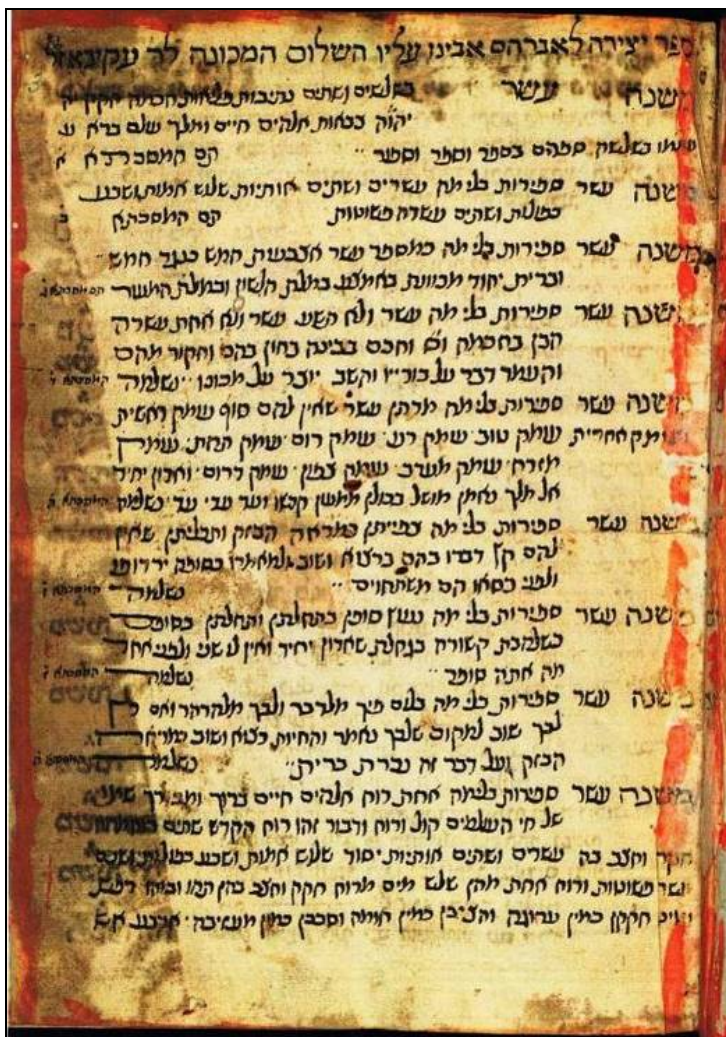 ספר יצירה לאברהם אבינו עליו השלום המכונה לר׳ עקיבא ז״ל
משנה עשר בשלשים ושתים נתיבות פליאות חכמה חקק יה
יהוה צבאות אלהים חיים ומלך עולם ברא
עולמו בשלשה ספרים בספר וספר וספור
משנה עשר ספירות בלי מה עשרים ושתים אותיות שלש אמות ושבע
כפולות ושתים עשרה פשוטות
משנה עשר ספירות בלי מה כמספר עשר אצבעות חמש כנגד חמש
וברית יחוד מכוונת באמצע במלת הלשון ובמלת המעור
משנה עשר ספירות בלי מה עשר ולא תשע עשר ולא אחת עשרה
הבן בחכמה וחכם בבינה בחון בהם וחקור מהם
והעמד דבר על בוריו והשב יוצר על מכונו
משנה עשר ספירות בלי מה מדתן עשר שאין להם סוף עומק ראשית
ועומק אחרית עומק טוב עומק רע עומק רום עומק תחת עומק
מזרח עומק מערב עומק צפון עומק דרום ואדון יחיד
אל מלך נאמן מושל בכולן ממעון קדשו ועד עדי עד
משנה עשר ספירות בלי מה צפייתן כמראה הבזק ותכליתן שאין
להם קץ דברו בהם ברצוא ושוב ולמאמרו כסופה ירדופו
ולפני כסאו הם משתחוים
משנה עשר ספירות בלי מה נעוץ סופן בתחלתן ותחלתן בסופן
כשלהבת קשורה בגחלת שאדון יחיד ואין לו שני ולפני אחד
מה אתה סופר
משנה עשר ספירות בלי מה בלום פיך מלדבר ולבך מלהרהר ואם רץ
לבך שוב למקום שלכך נאמר והחיות רצוא ושוב כמראה
הבזק ועל דבר זה נכרת ברית
משנה עשר ספירות בלימה אחת רוח אלהים חיים ברוך ומבורך שמו
של חי העולמים קול ורוח ודבור וזהו רוח הקדש שתים
חקק וחצב בה עשרים ושתים אותיות יסוד שלש אמות ושבע כפולות ושתים
עשר פשוטות ורוח אחת מהן שלש מים מרוח חקק וחצב בהן תהו ובהו רפש
וטיט חקקן כמין ערוגה והציבן כמין חומה וסככן כמין מעזיבה ארבע אש